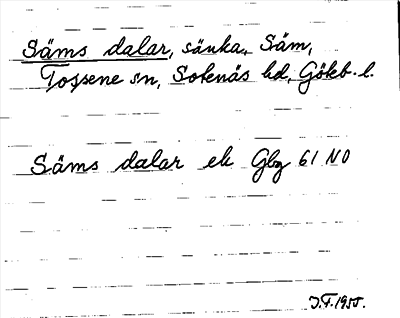 Säms dalar, sänka, Säm,
Tossene sn, Sotenäs hd, Göteb. l.
Säms dalar ek Gbg 61 NO
J.F. 1955.